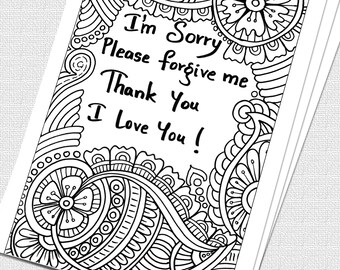 I'm Sorry
Please forgive me
Thank You
I Love You !